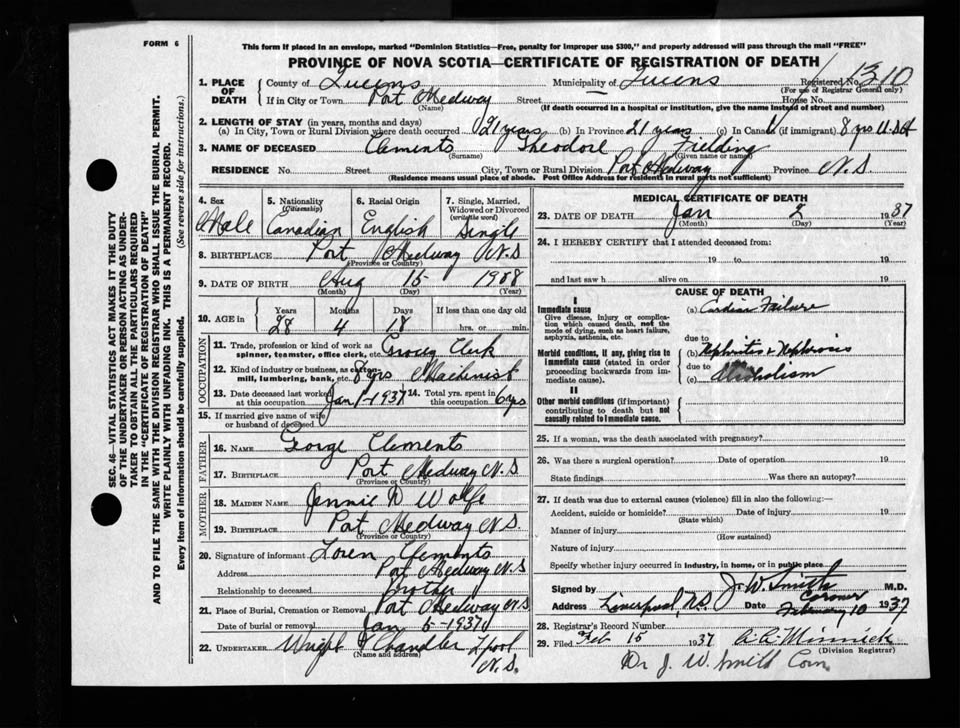 FORM 6
This form if placed in an envelope, marked "Dominion Statistics—Free, penalty for improper use $300," and properly addressed will pass through the mail "FREE"
PROVINCE OF NOVA SCOTIA—CERTIFICATE OF REGISTRATION OF DEATH
1. PLACE OF DEATH County of Queens Municipality of Queens Registered No. 1310
(For use of Registrar General only)
If in City or Town Port Medway Street House No.
(Name) (If death occurred in a hospital or institution, give the name instead of street and number)
2. LENGTH OF STAY (in years, months and days)
(a) In City, Town or Rural Division where death occurred 21 years (b) In Province 21 years (c) In Canada (if immigrant) 8 yrs U.S.A
3. NAME OF DECEASED Clements Theodore Fielding
(Surname) (Given name or names)
RESIDENCE No. Street City, Town or Rural Division Port Medway Province N.S.
(Residence means usual place of abode. Post Office Address for residents in rural parts not sufficient)
4. Sex Male
5. Nationality (Citizenship) Canadian
6. Racial Origin English
7. Single, Married, Widowed or Divorced (write the word) Single
8. BIRTHPLACE Port Medway N.S
(Province or Country)
9. DATE OF BIRTH Aug 15 1908
(Month) (Day) (Year)
10. AGE in Years Months Days If less than one day old
28 4 18 hrs. or min.
OCCUPATION
11. Trade, profession or kind of work as spinner, teamster, office clerk, etc. Grocery Clerk
12. Kind of industry or business, as cotton mill, lumbering, bank, etc. 8 yrs Machinist
13. Date deceased last worked at this occupation Jan 1-1937 14. Total yrs. spent in this occupation 6 yrs
15. If married give name of wife or husband of deceased
FATHER
16. NAME George Clements
17. BIRTHPLACE Port Medway N.S
(Province or Country)
MOTHER
18. MAIDEN NAME Jennie D Wolfe
19. BIRTHPLACE Port Medway N.S.
(Province or Country)
20. Signature of informant Loren Clements
Address Port Medway N.S
Relationship to deceased brother
21. Place of Burial, Cremation or Removal Port Medway N.S
Date of burial or removal Jan 5-1937
22. UNDERTAKER Wright & Chandler L'pool N.S.
(Name and address)
MEDICAL CERTIFICATE OF DEATH
23. DATE OF DEATH Jan 2 1937
(Month) (Day) (Year)
24. I HEREBY CERTIFY that I attended deceased from:
19 to 19
and last saw h alive on 19
CAUSE OF DEATH
I
Immediate cause (a) Cardiac Failure
Give disease, injury or complication which caused death, not the mode of dying, such as heart failure, asphyxia, asthenia, etc.
due to
Morbid conditions, if any, giving rise to immediate cause (stated in order proceeding backwards from immediate cause). (b) Nephritis & Nephrosis
due to
(c) Alcoholism
II
Other morbid conditions (if important) contributing to death but not causally related to immediate cause.
25. If a woman, was the death associated with pregnancy?
26. Was there a surgical operation? Date of operation 19
State findings Was there an autopsy?
27. If death was due to external causes (violence) fill in also the following:—
Accident, suicide or homicide? Date of injury 19
(State which)
Manner of injury
(How sustained)
Nature of injury
Specify whether injury occurred in industry, in home, or in public place
Signed by J. W. Smith M.D.
Coroner
Address Liverpool, N.S. Date February 10 1937
28. Registrar's Record Number
29. Filed Feb 15 1937 Minnick
(Division Registrar)
Dr J. W. Smith Corn
SEC. 46—VITAL STATISTICS ACT MAKES IT THE DUTY
OF THE UNDERTAKER OR PERSON ACTING AS UNDERTAKER TO OBTAIN ALL THE PARTICULARS REQUIRED
IN THE "CERTIFICATE OF REGISTRATION OF DEATH"
AND TO FILE THE SAME WITH THE DIVISION REGISTRAR WHO SHALL ISSUE THE BURIAL PERMIT.
WRITE PLAINLY WITH UNFADING INK. THIS IS A PERMANENT RECORD.
Every item of information should be carefully supplied. (See reverse side for instructions.)